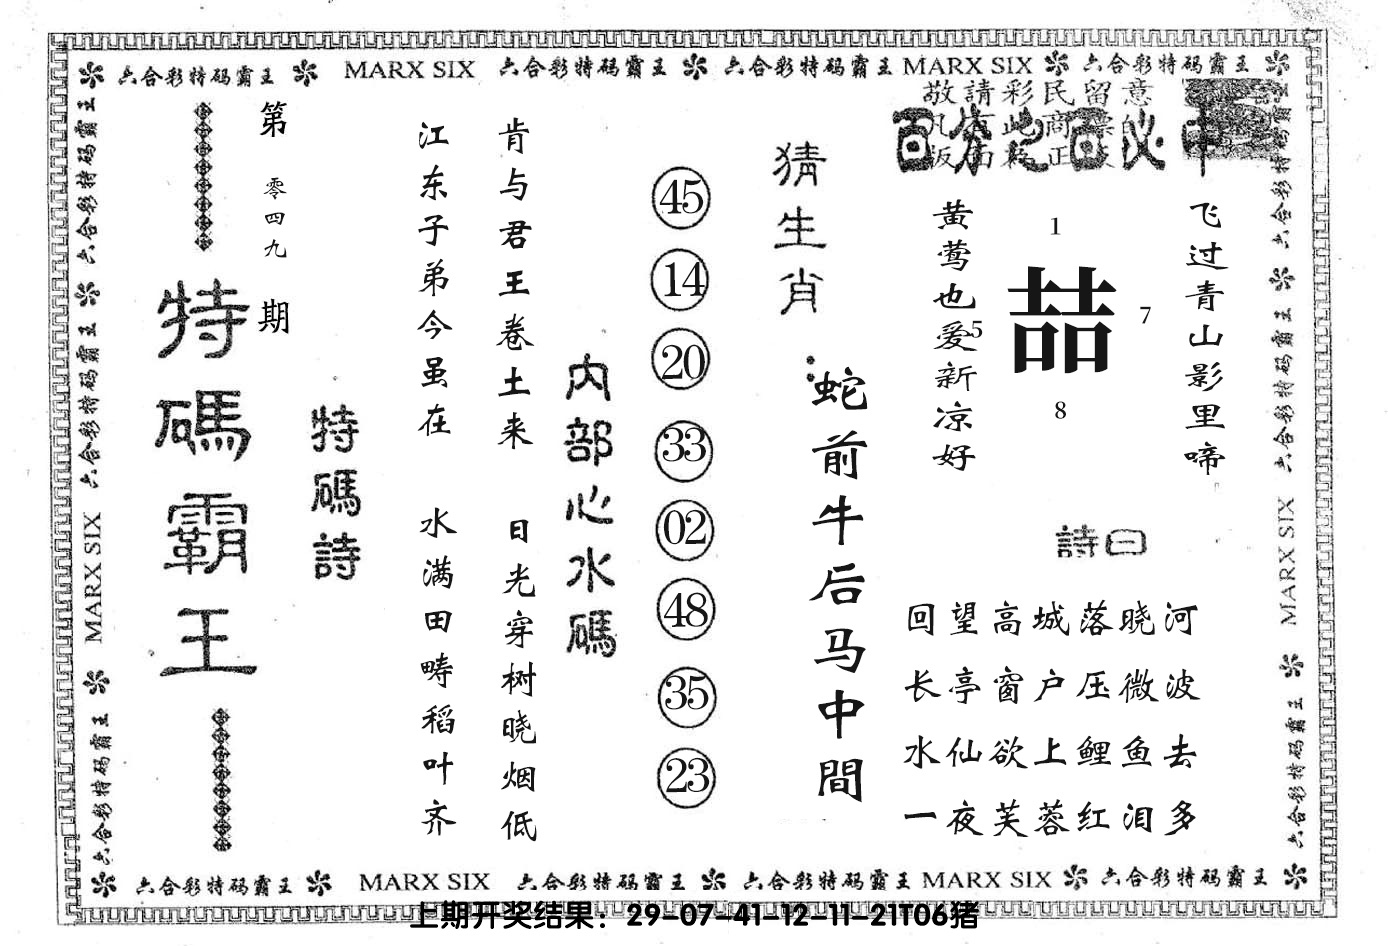 六合彩特码霸王 MARX SIX 六合彩特码霸王 六合彩特码霸王 MARX SIX 六合彩特码霸王
六合彩特码霸王 六合彩特码霸王 MARX SIX 六合彩特码霸王
第零四九期
特碼霸王
特碼詩
江东子弟今虽在
肯与君王卷土来
水满田畴稻叶齐
日光穿树晓烟低
内部心水碼
45
14
20
33
02
48
35
23
猜生肖:
蛇前牛后马中間
敬請彩民留意
黄莺也爱新凉好
飞过青山影里啼
1
5
喆
7
8
詩曰
回望高城落晓河
长亭窗户压微波
水仙欲上鲤鱼去
一夜芙蓉红泪多
六合彩特码霸王 六合彩特码霸王 MARX SIX 六合彩特码霸王
六合彩特码霸王 MARX SIX 六合彩特码霸王 六合彩特码霸王 MARX SIX 六合彩特码霸王
上期开奖结果：29-07-41-12-11-21T06猪